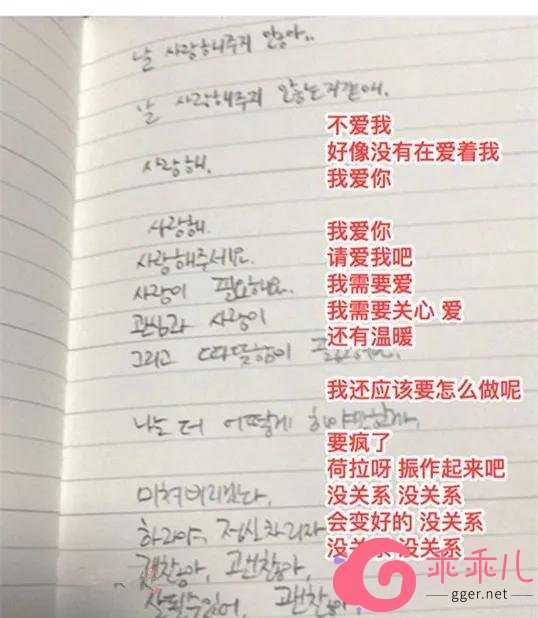 날 사랑해주지 않아..
날 사랑해주지 않는거같애.
사랑해.
사랑해.
사랑해주세요.
사랑이 필요해요.
관심과 사랑이
그리고 따뜻함이
나는 더 어떻게
미쳐버리겠다.
하라야, 정신차리자
괜찮아, 괜찮아,
잘될수있어, 괜찮아
不爱我
好像没有在爱着我
我爱你
我爱你
请爱我吧
我需要爱
我需要关心 爱
还有温暖
我还应该要怎么做呢
要疯了
荷拉呀 振作起来吧
没关系 没关系
会变好的 没关系
没关系 没关系
乖乖儿
gger.net